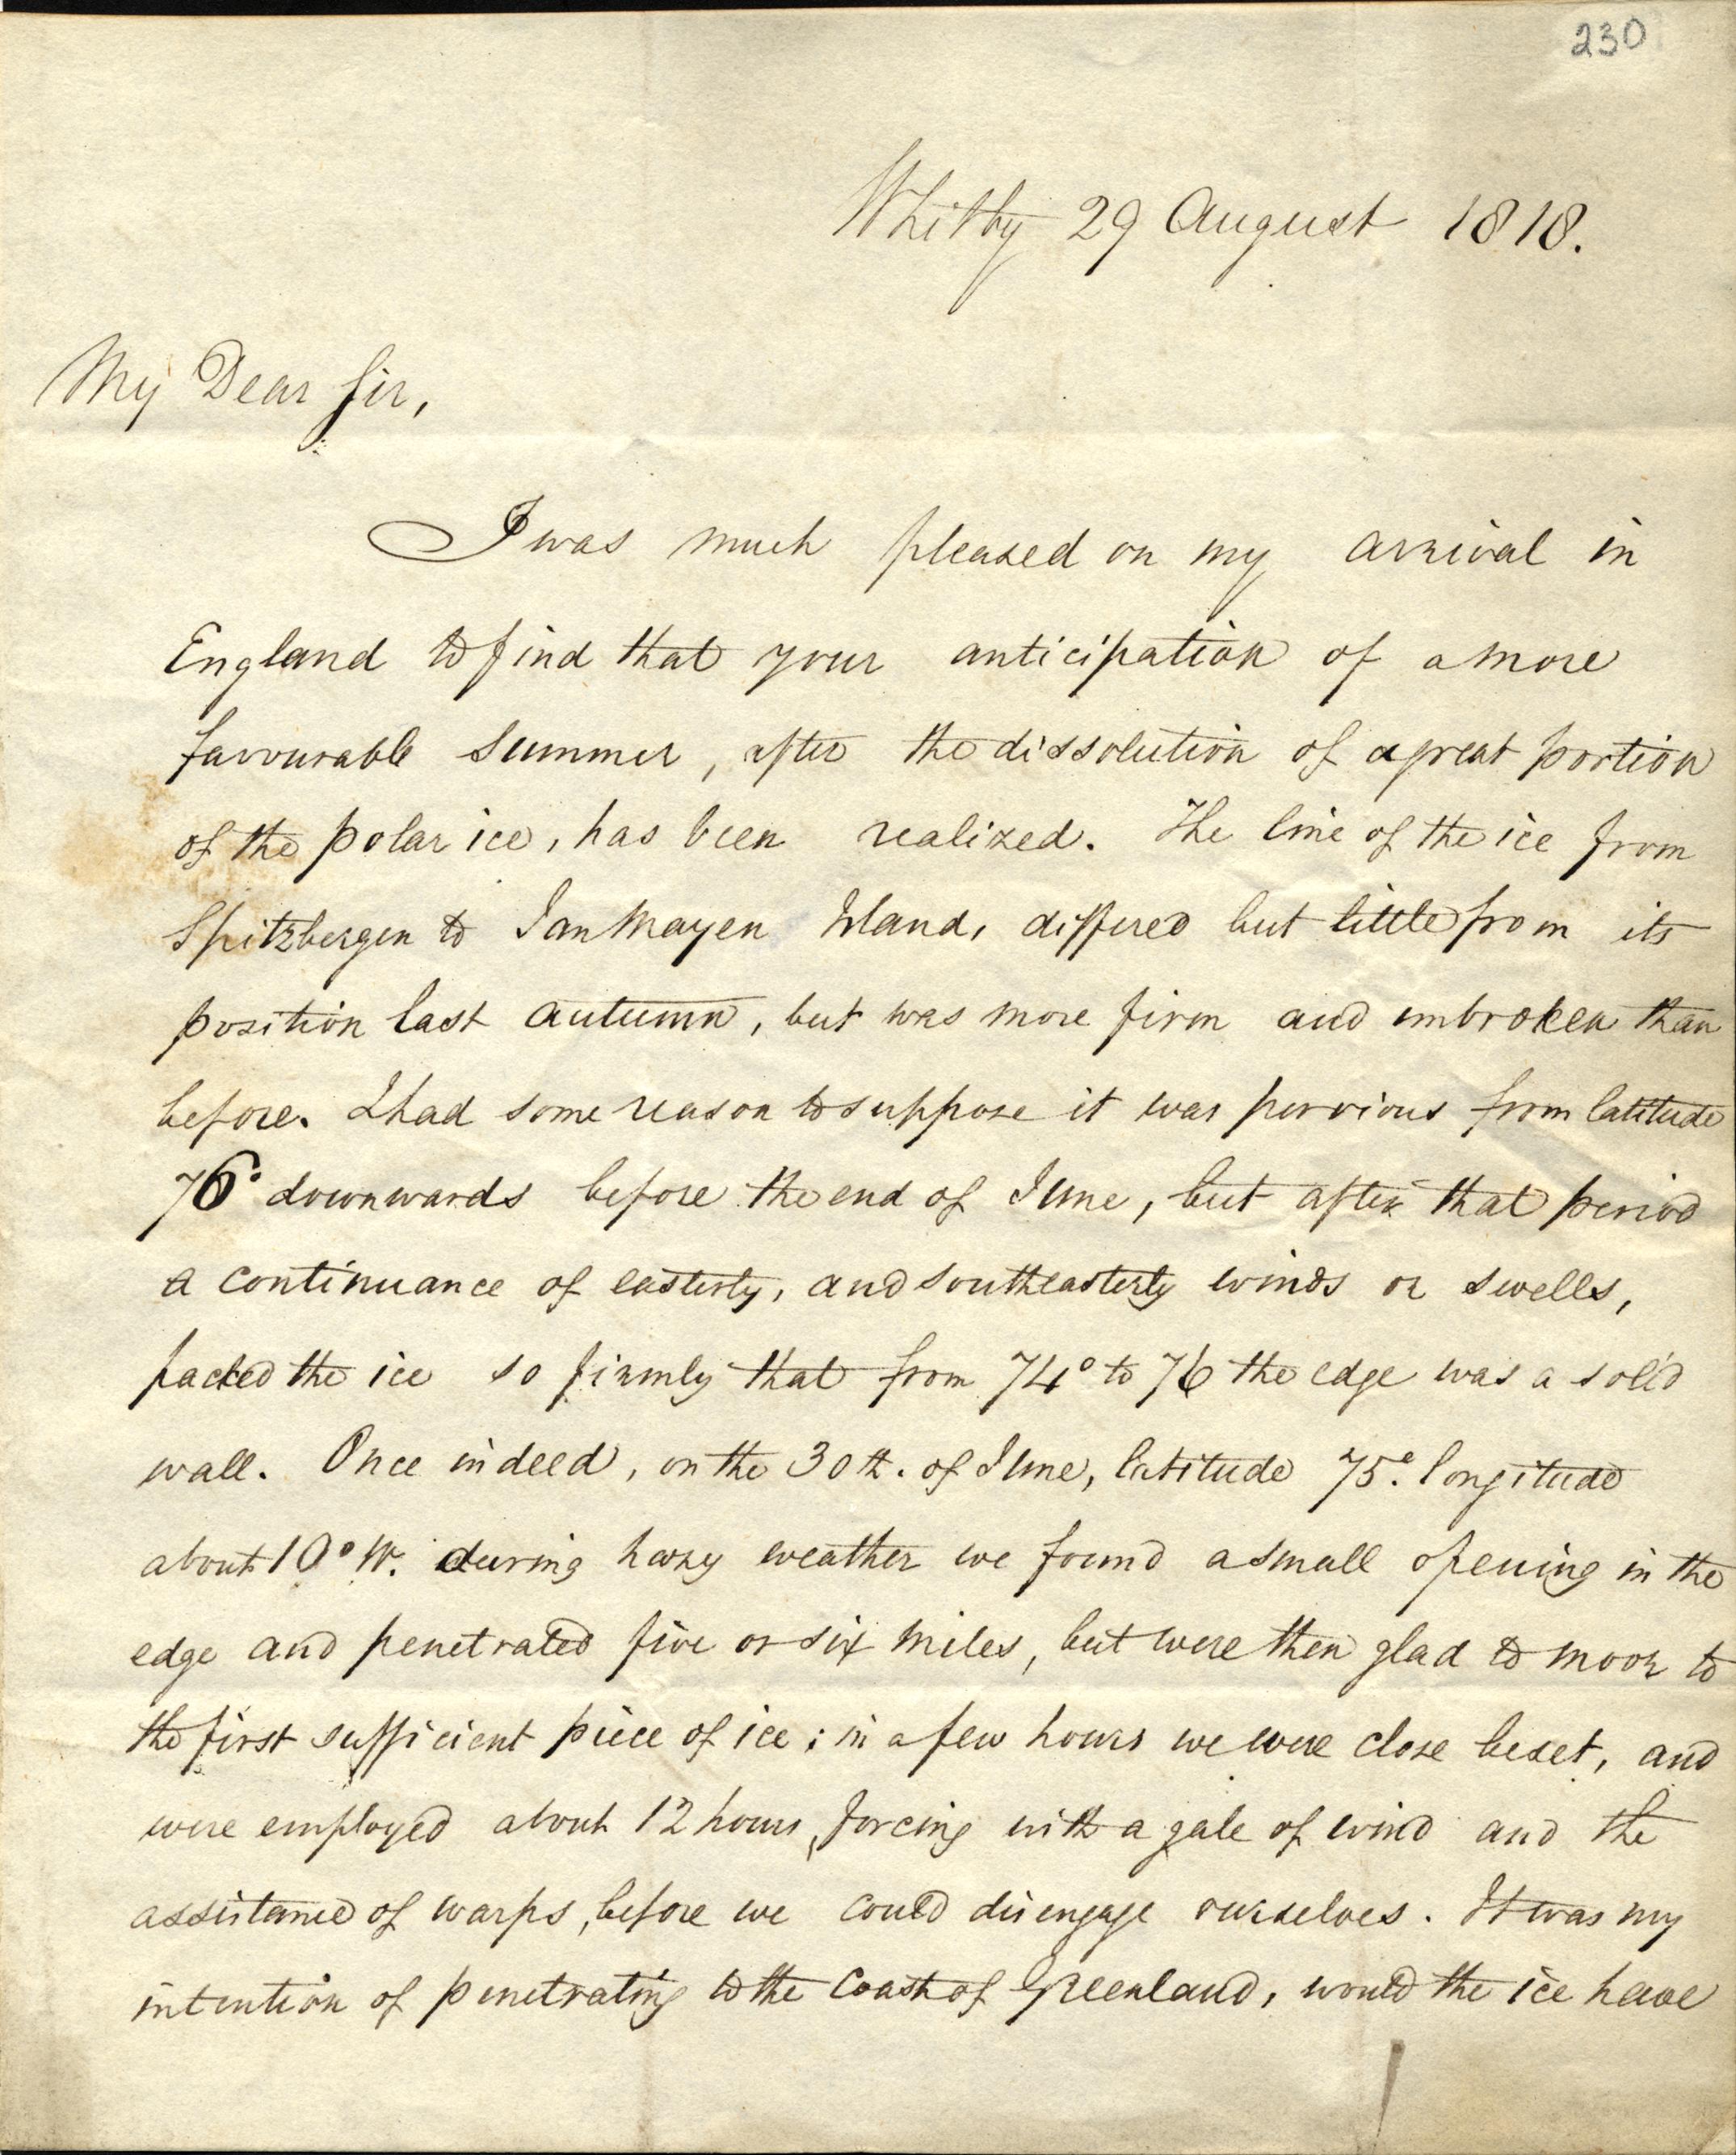 230
Whitby 29 August 1818.
My Dear Sir,
I was much pleased on my arrival in
England to find that your anticipation of a more
favourable summer, after the dissolution of a great portion
of the polar ice, has been realized. The line of the ice from
Spitzbergen to Jan Mayen Island, differed but little from its
position last autumn, but was more firm and unbroken than
before. I had some reason to suppose it was pervious from latitude
76° downwards before the end of June, but after that period
a continuance of easterly, and southeasterly winds or swells,
packed the ice so firmly that from 74° to 76 the edge was a solid
wall. Once indeed, on the 30th. of June, latitude 75°. longitude
about 10° W. during hazy weather we found a small opening in the
edge and penetrated five or six miles, but were then glad to moor to
the first sufficient piece of ice; in a few hours we were close beset, and
were employed about 12 hours, forcing with a gale of wind and the
assistance of warps, before we could disengage ourselves. It was my
intention of penetrating to the coast of Greenland, would the ice have